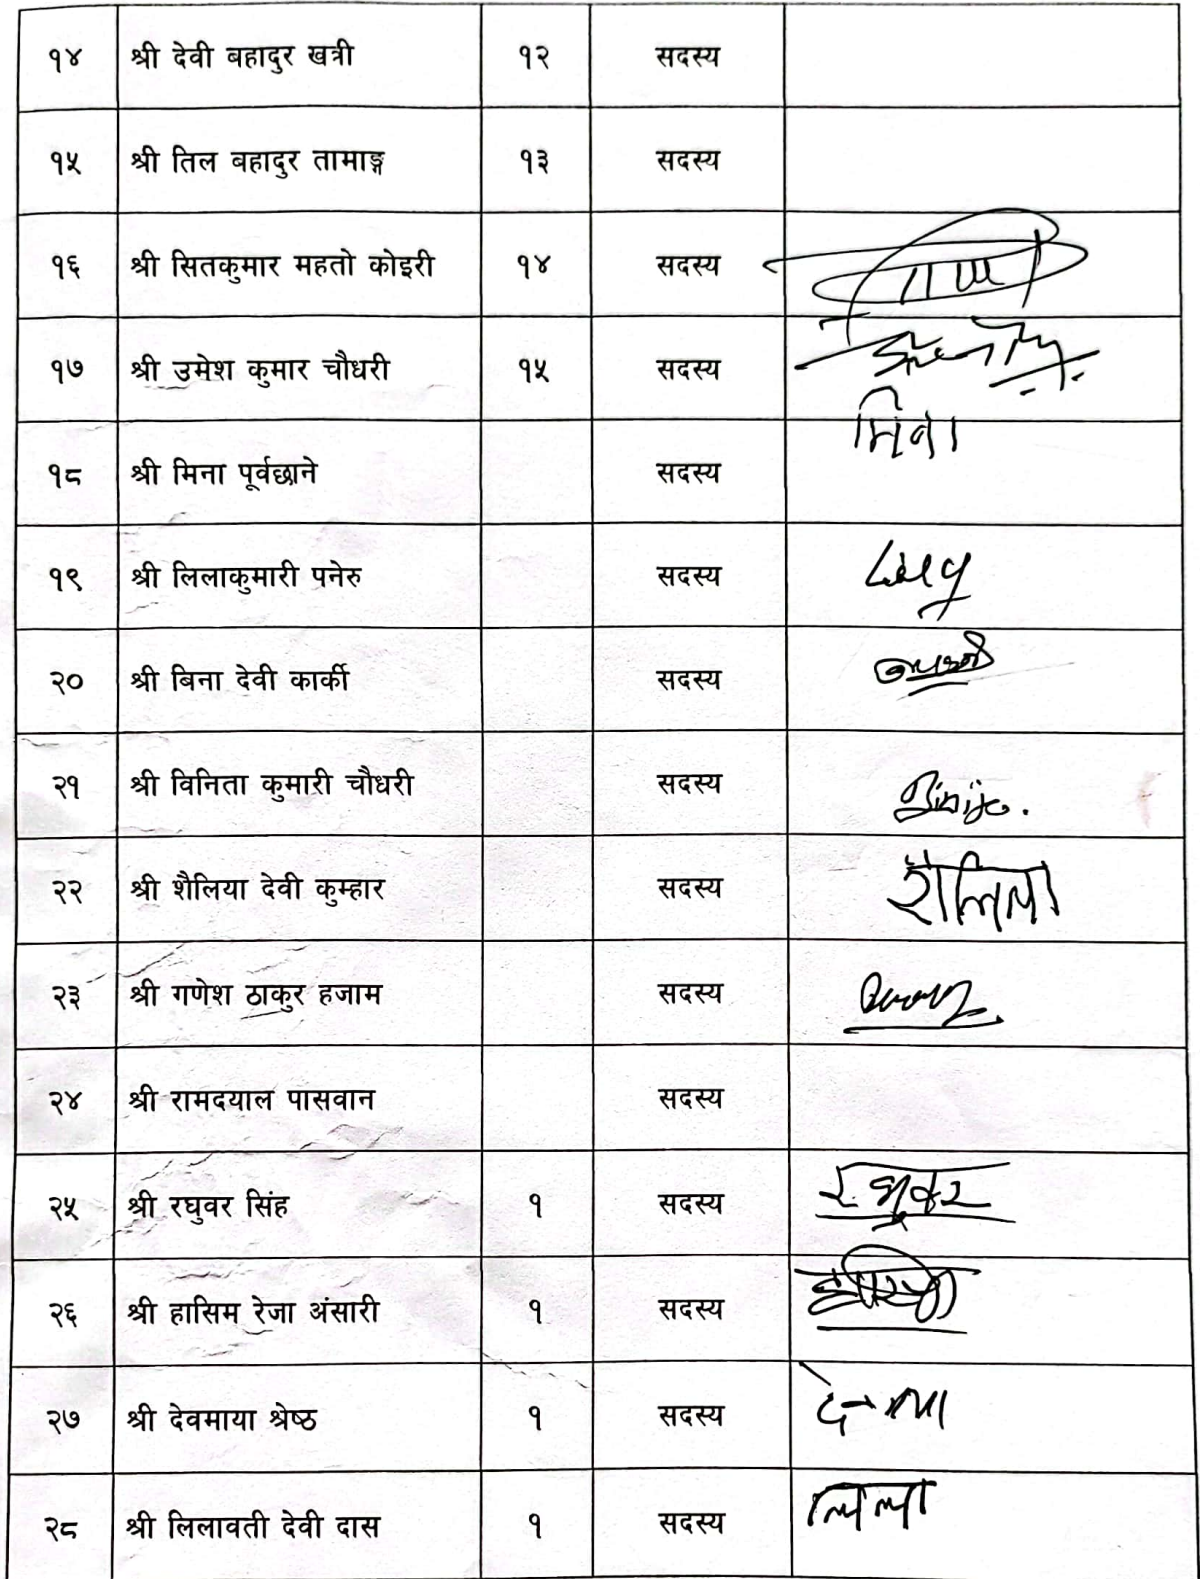 १४ श्री देवी बहादुर खत्री १२ सदस्य
१५ श्री तिल बहादुर तामाङ्ग १३ सदस्य
१६ श्री सितकुमार महतो कोइरी १४ सदस्य
१७ श्री उमेश कुमार चौधरी १५ सदस्य
१८ श्री मिना पूर्वछाने सदस्य मिना
१९ श्री लिलाकुमारी पनेरु सदस्य
२० श्री बिना देवी कार्की सदस्य
२१ श्री विनिता कुमारी चौधरी सदस्य
२२ श्री शैलिया देवी कुम्हार सदस्य शैलिया
२३ श्री गणेश ठाकुर हजाम सदस्य
२४ श्री रामदयाल पासवान सदस्य
२५ श्री रघुवर सिंह १ सदस्य रघुवर
२६ श्री हासिम रेजा अंसारी १ सदस्य
२७ श्री देवमाया श्रेष्ठ १ सदस्य
२८ श्री लिलावती देवी दास १ सदस्य